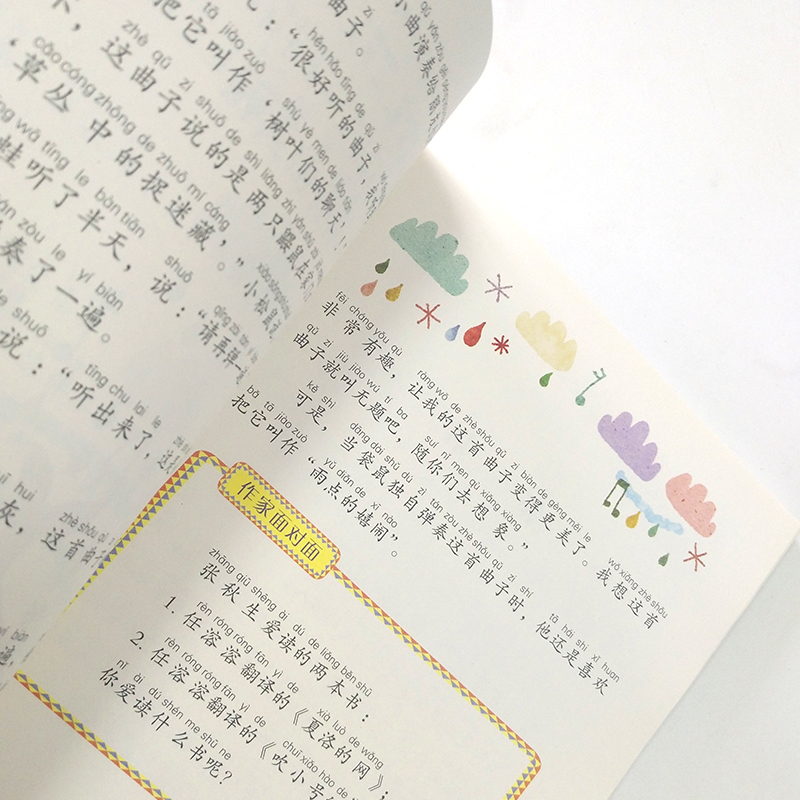 小曲演奏给
zi
子。
shuō hěn hǎo tīng de qǔ zi
说：“很好听的曲子，
tā jiào zuò shù yè men de liáo tiān
把它叫作‘树叶们的聊天’！”
zhè qǔ zi shuō de shì liǎng zhī yǎn shǔ zài
，这曲子说的是两只鼹鼠在
cǎo cóng zhōng de zhuō mí cáng
‘草丛中的捉迷藏。’”小松鼠
wā tīng le bàn tiān shuō
蛙听了半天，说：“请再弹
zòu le yí biàn
奏了一遍。
shuō tīng chū lái le
说：“听出来了，
jī huī zhè shǒu qǔ
灰，这首曲
fēi cháng yǒu qù ràng wǒ de zhè shǒu qǔ zi biàn de gèng měi le wǒ xiǎng zhè shǒu
非常有趣，让我的这首曲子变得更美了。我想这首
qǔ zi jiù jiào wú tí ba suí nǐ men qù xiǎng xiàng
曲子就叫无题吧，随你们去想象。”
kě shì dāng dài shǔ dú zì tán zòu zhè shǒu qǔ zi shí tā hái shì xǐ huan
可是，当袋鼠独自弹奏这首曲子时，他还是喜欢
bǎ tā jiào zuò yǔ diǎn de xī nào
把它叫作“雨点的嬉闹”。
作家面对面
zhāng qiū shēng ài dú de liǎng běn shū
张秋生爱读的两本书：
rén róng róng fān yì de xià luò de wǎng
1. 任溶溶翻译的《夏洛的网》；
rén róng róng fān yì de chuī xiǎo hào de
2. 任溶溶翻译的《吹小号的
nǐ ài dú shén me shū ne
你爱读什么书呢？